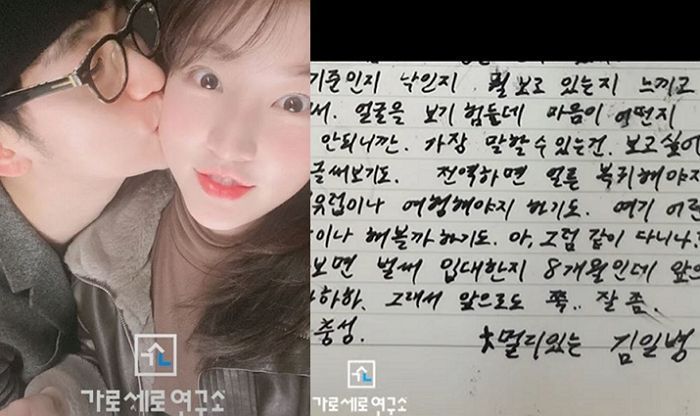 가로세로연구소
기준인지 낙인지 뭘 보로 있는지 느끼고
서. 얼굴을 보기 힘든데 마음이 어떤지
안되니깐. 가장 말할 수 있는건. 보고싶어
글써보기도. 전역하면 얼른 복귀해야지
유럽이나 여행해야지 하기도. 여기 어
이나 해볼까 하기도. 아, 그럼 같이 다니나?
보면 벌써 입대한지 8개월인데 앞으
하하. 그래서 앞으로도 쭉.. 잘 좀.
충성. 멀리있는 김일병
가로세로연구소